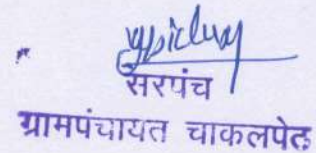 सरपंच
ग्रामपंचायत चाकलपेठ